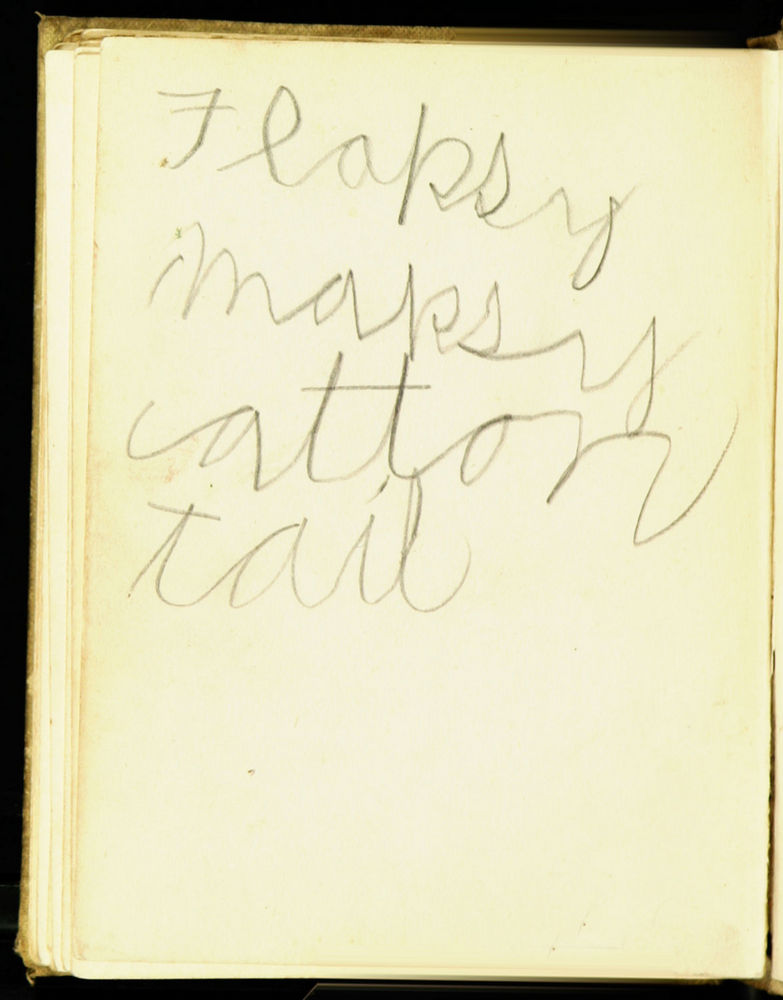 Flapsy
mapsy
catton
tail